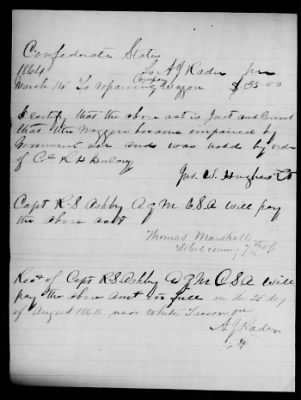 Confederate States
1864 To A J Rader
March 14 To repairing Company Waggon $35.00
I certify that the above act is Just and Correct
that the Waggon became impaired by
Government use and was used by order
of Col R H Dulany
Jas. W. Hughes
Capt R.S. Ashby A Q M C.S.A will pay
the above act
Thomas Marshall
Lt Col comdg 7th
Recd of Capt R.S Ashby A Q M C S A will
pay the above amt in full in the 2d day
of August 1864 near White
A J Rader